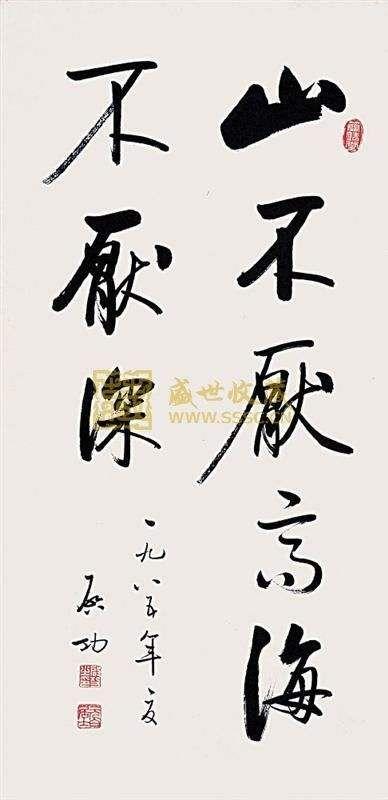 山不厭高海
不厭深
一九八五年夏
启功
盛世收藏
WWW.SSSC.CN